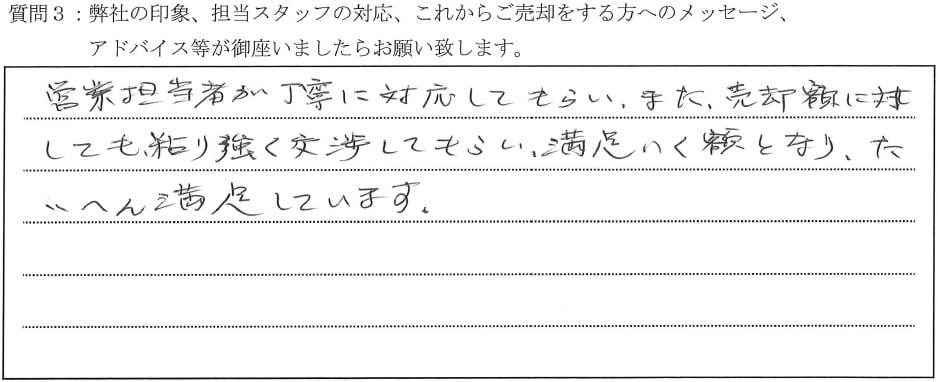 質問３：弊社の印象、担当スタッフの対応、これからご売却をする方へのメッセージ、
アドバイス等が御座いましたらお願い致します。
営業担当者が丁寧に対応してもらい、また、売却額に対
しても、粘り強く交渉してもらい、満足いく額となり、た
いへん満足しています。